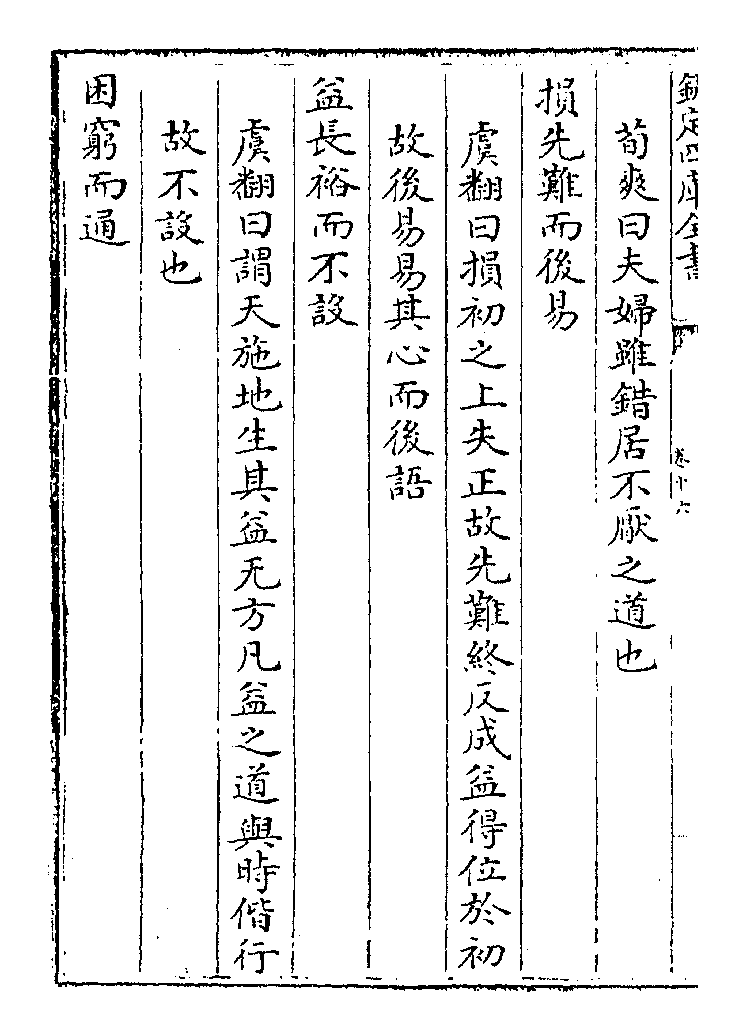 欽定四庫全書 卷十六
荀爽曰夫婦雖錯居不厭之道也
損先難而後易
虞翻曰損初之上失正故先難終反成益得位於初
故後易易其心而後語
益長裕而不設
虞翻曰謂天施地生其益无方凡益之道與時偕行
故不設也
困窮而通